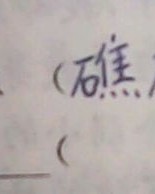 (礁
(